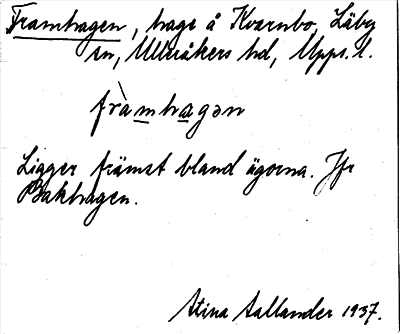 Framhagen, hage å Kvarnbo, Läby
sn, Ulleråkers hd, Upps. l.
fràmhagən
Ligger främst bland ägorna. Jfr
Bakhagen.
Stina Sallander 1937.